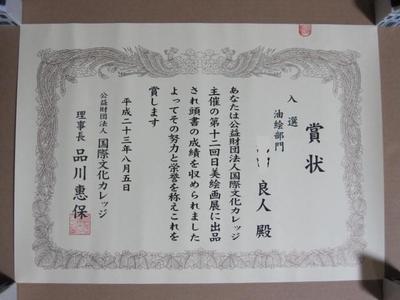 賞状
入選
油絵部門
良人 殿
あなたは公益財団法人国際文化カレッジ
主催の第十二回日美絵画展に出品
され頭書の成績を収められました
よってその努力と栄誉を称えこれを
賞します
平成二十三年八月五日
公益財団法人 国際文化カレッジ
理事長 品川惠保